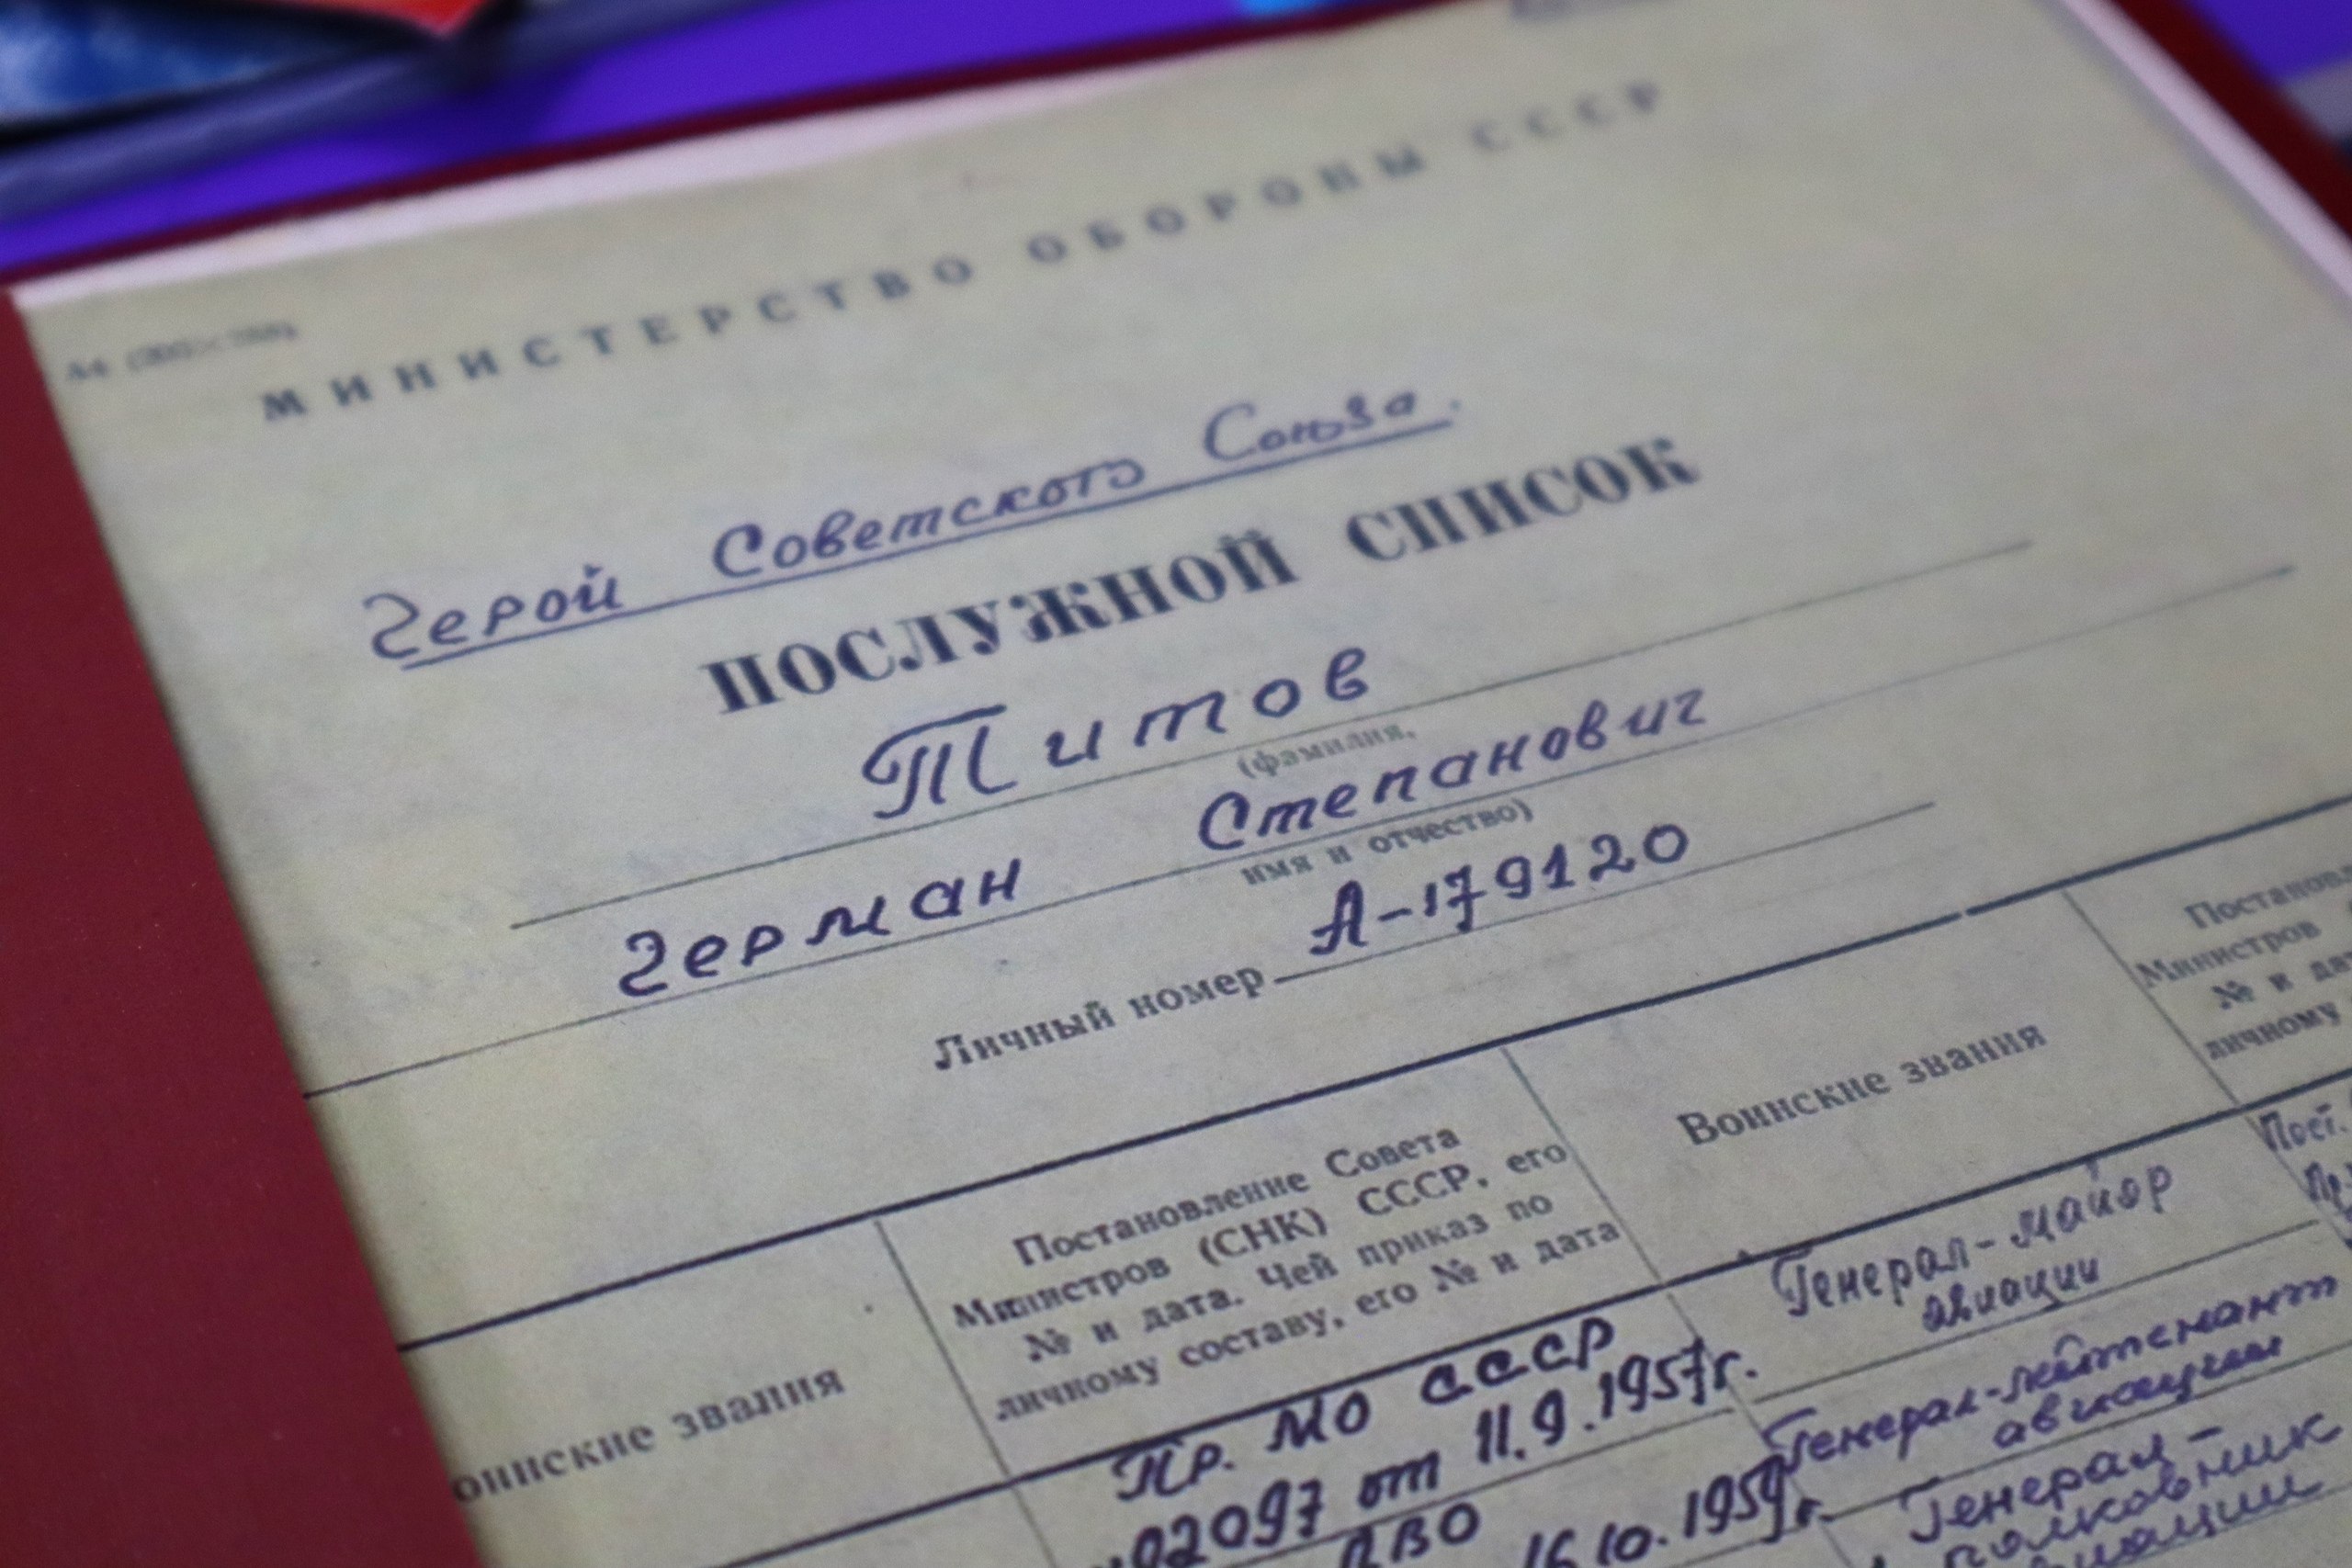 МИНИСТЕРСТВО ОБОРОНЫ СССР
Герой Советского Союза.
ПОСЛУЖНОЙ СПИСОК
Титов
(фамилия,
Герман Степанович
имя и отчество)
Личный номер А-179120
оинские звания
Постановление Совета
Министров (СНК) СССР, его
№ и дата. Чей приказ по
личному составу, его № и дата
Воинские звания
Постановл
Министров
№ и дат
личному
Пр. МО СССР
02097 от 11.9.1957г.
ВО
16.10.1959г.
Генерал-майор
авиации
Генерал-лейтенант
авиации
Генерал-
полковник
авиации
Пост.
Пр.